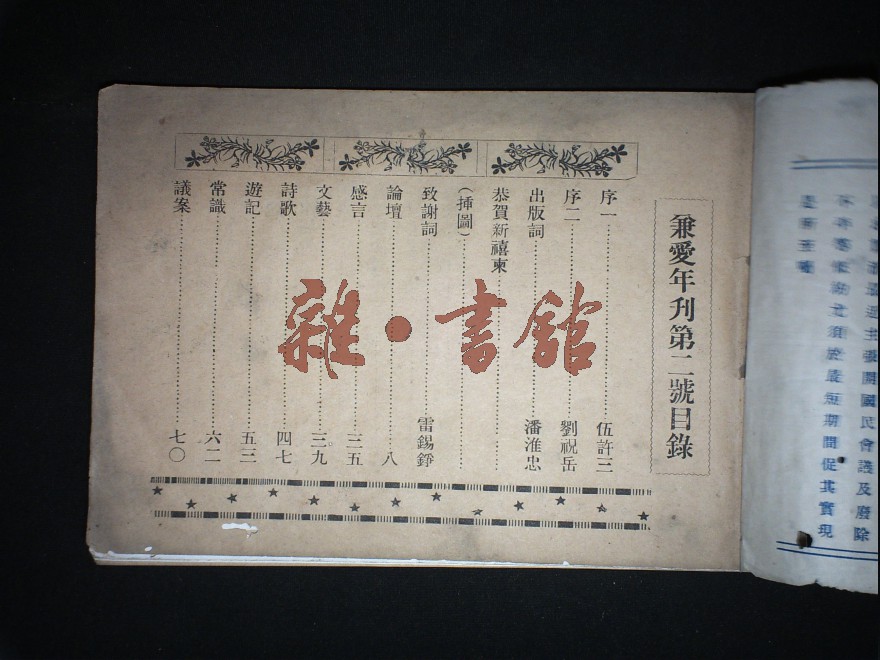 兼愛年刊第二號目錄
序一……伍許三
序二……劉祝岳
出版詞……潘淮忠
恭賀新禧柬……
(揷圖)……
致謝詞……雷錫錚
論壇……八
感言……三五
文藝……三九
詩歌……四七
遊記……五三
常識……六二
議案……七〇
主張開國民會議及廢除
須於最短期間促其實現
雜·書館